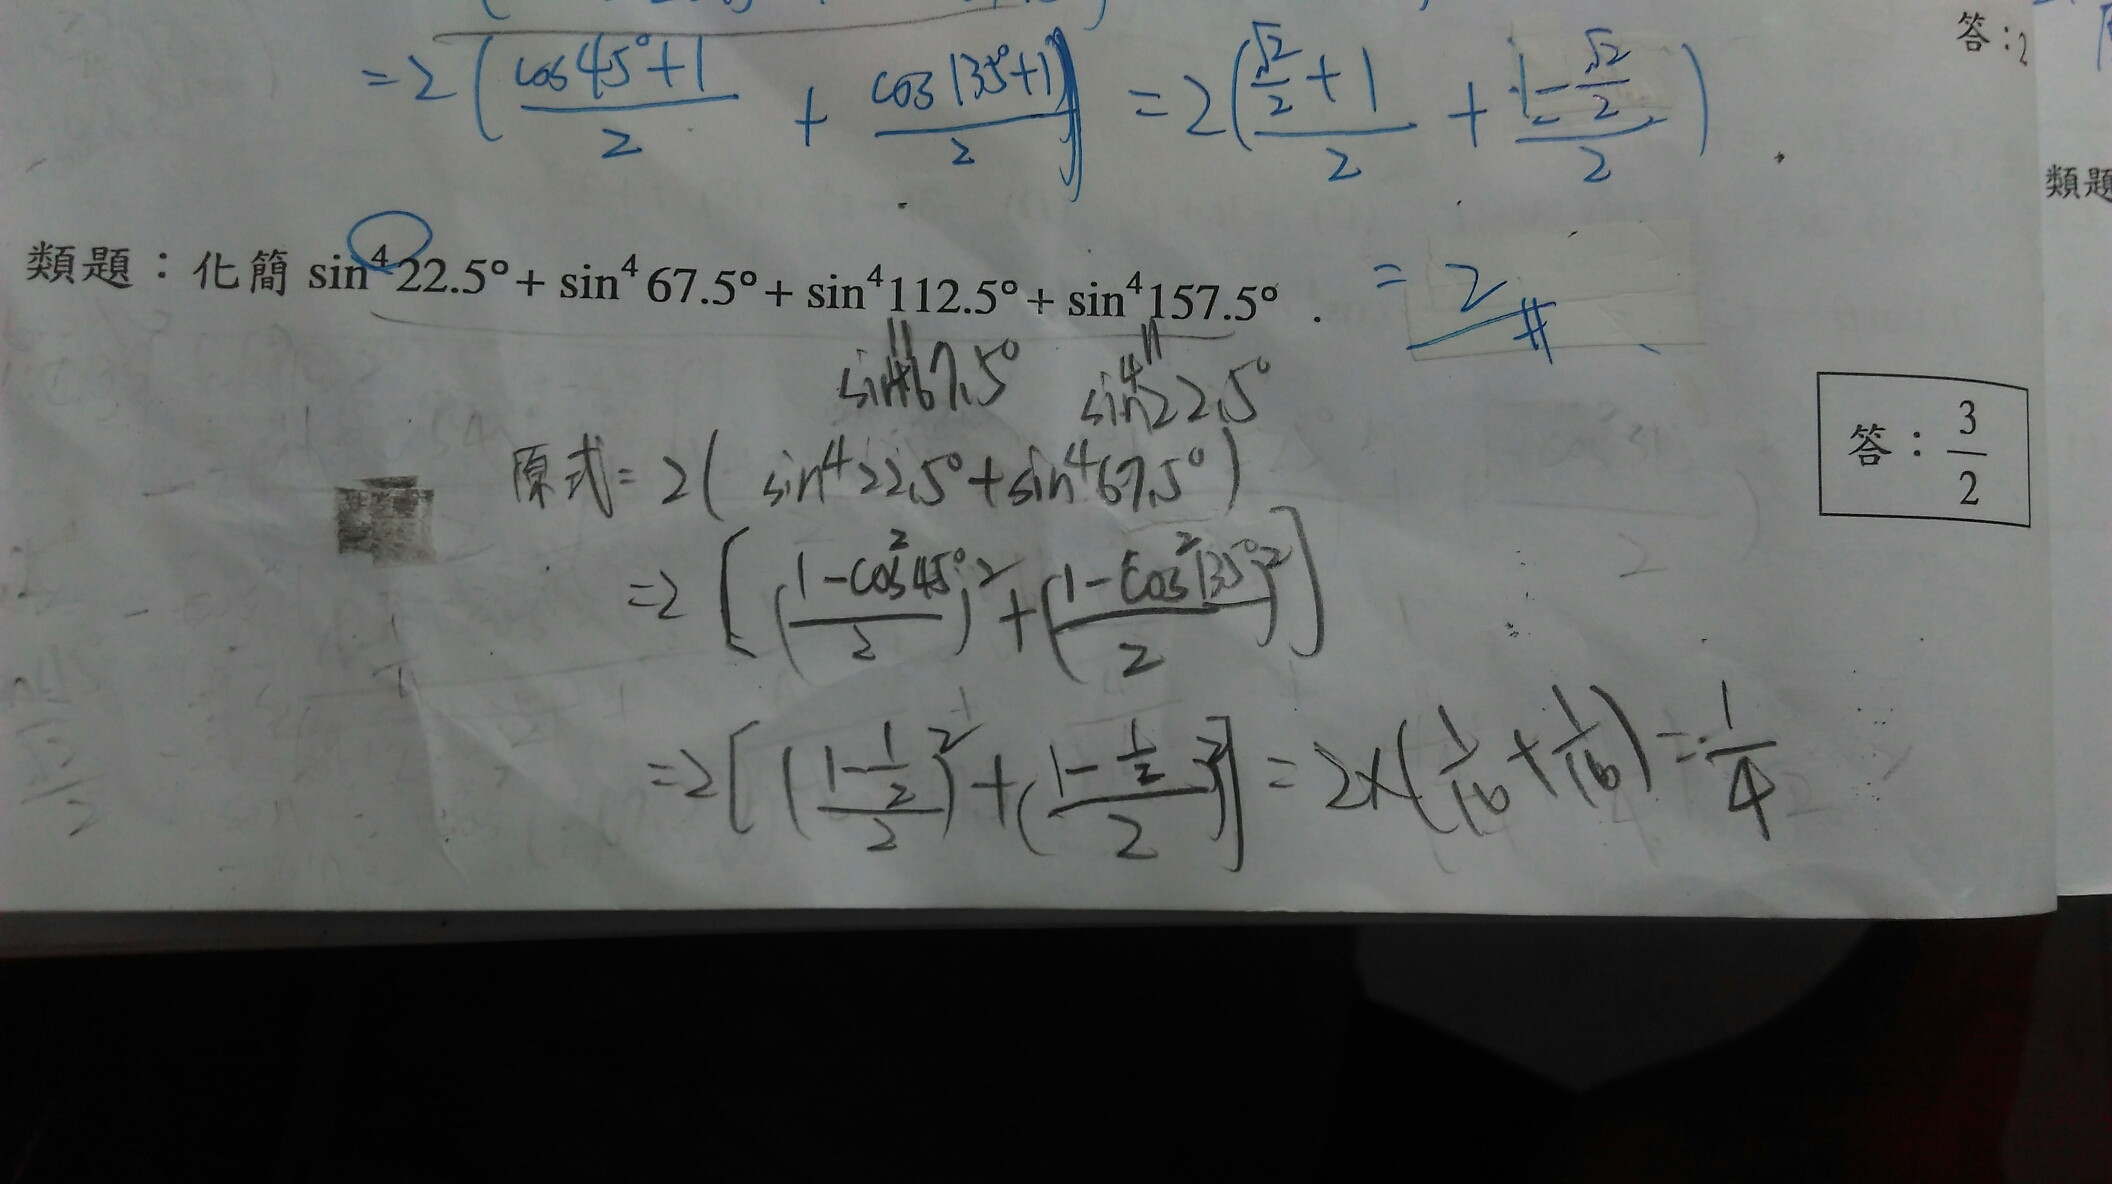 答:2
=2(cos45°+1/2 + cos135°+1/2) = 2(√2/2+1/2 + 1-√2/2/2)
類題
類題：化簡 sin⁴22.5°+sin⁴67.5°+sin⁴112.5°+sin⁴157.5°．
=2#
sin⁴67.5° sin⁴22.5°
答：3/2
原式=2(sin⁴22.5°+sin⁴67.5°)
=2[(1-cos²45°/2)²+(1-cos²135°/2)²]
=2[(1-1/2/2)²+(1-1/2/2)²]=2×(1/16+1/16)=1/4